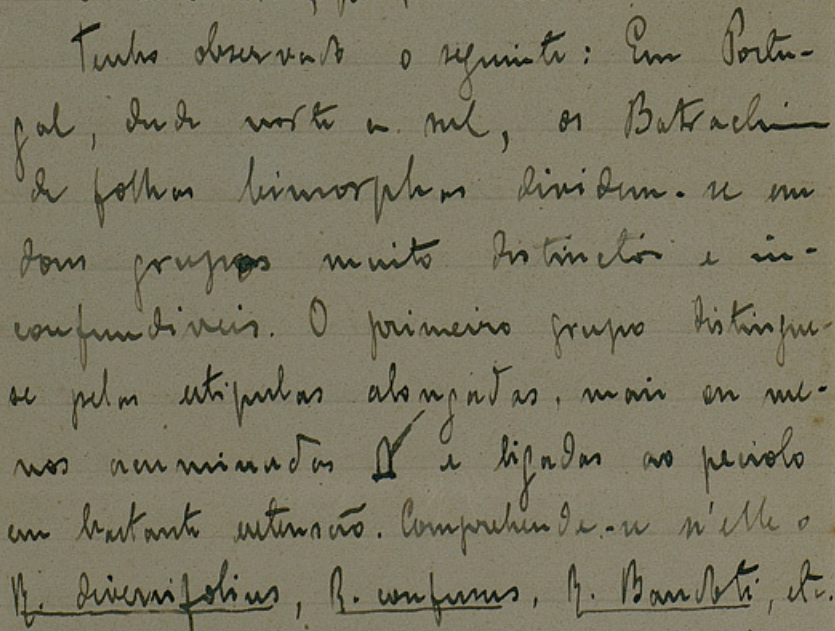 Tenho observado o seguinte: Em Portu-
gal, desde norte a sul, os Batrachium
de folhas bimorphas dividem-se em
dous grupos muito distinctos e in-
confundiveis. O primeiro grupo distingue-
se pelas estipulas alongadas, mais ou me-
nos acuminadas e ligadas ao peciolo
em bastante extensão. Comprehende-se n'elle o
R. diversifolius, R. confusus, R. Baudoti, etc.